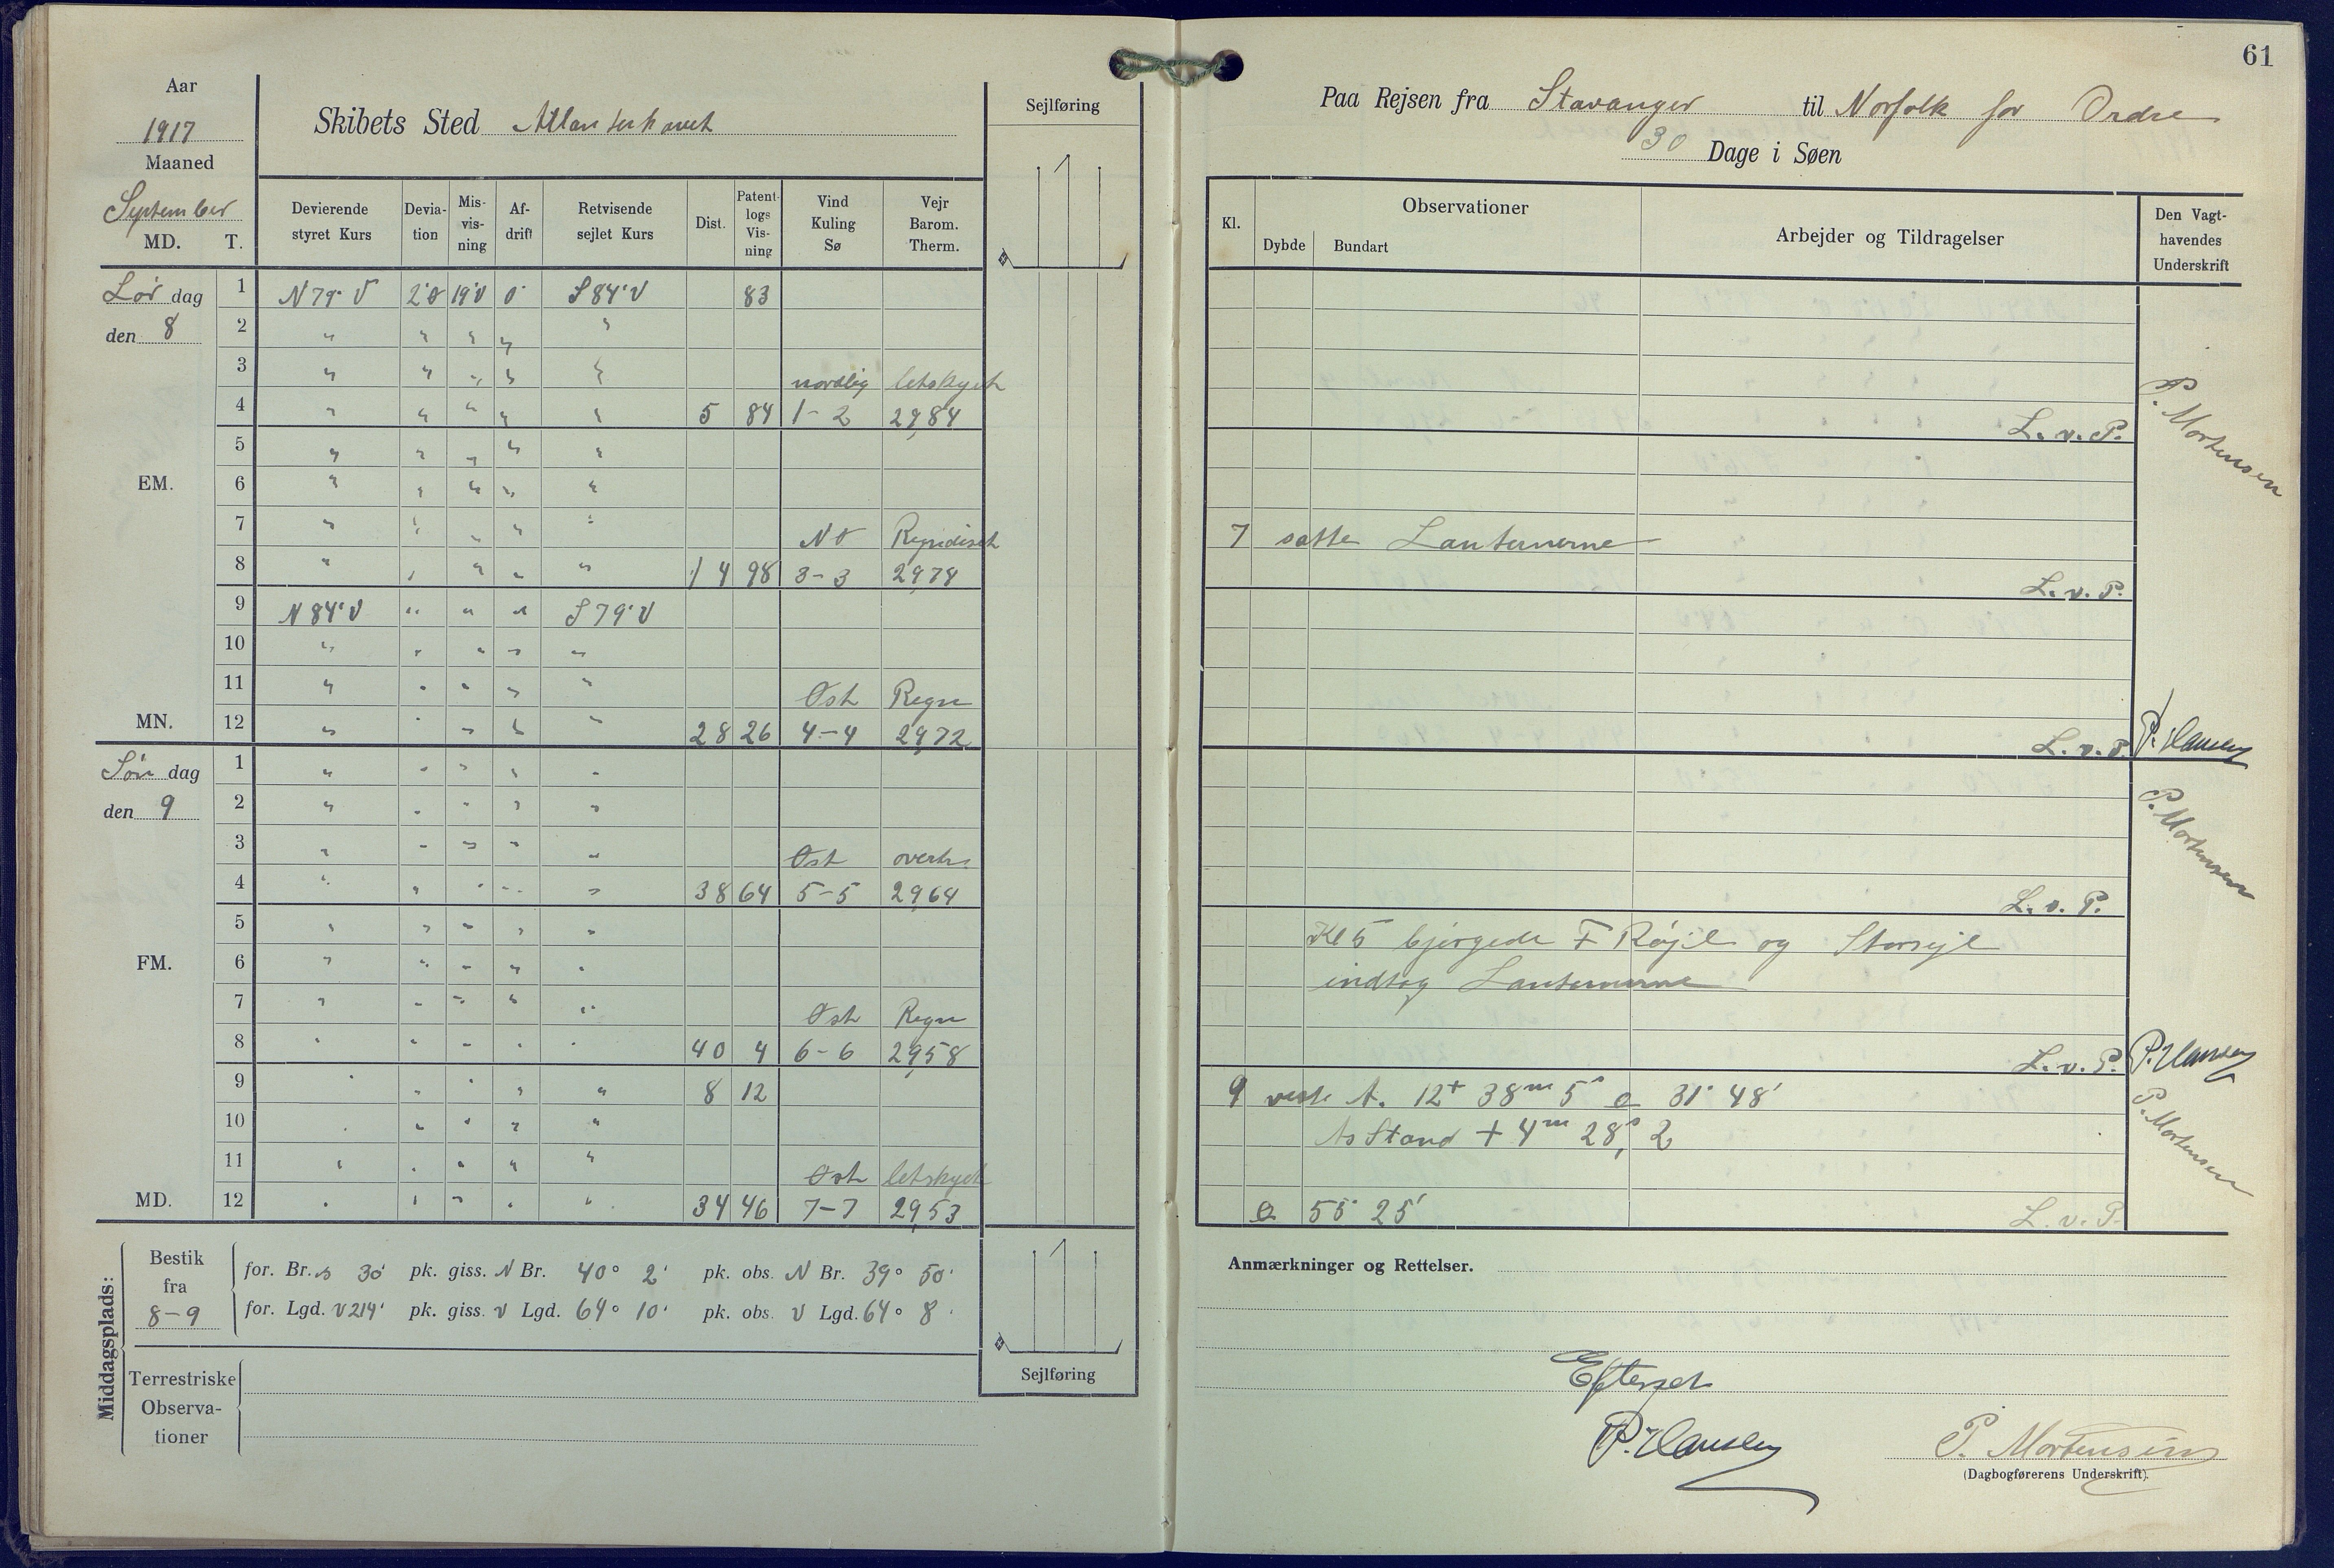 61
Aar
1917
Maaned
September
MD. T.
Skibets Sted Atlanterhavet
Sejlføring
Paa Rejsen fra Stavanger til Norfolk for Ordre
30 Dage i Søen
Devierende styret Kurs
Devia-tion
Mis-vis-ning
Af-drift
Retvisende sejlet Kurs
Dist.
Patent-logs Vis-ning
Vind Kuling Sø
Vejr Barom. Therm.
Kl.
Observationer
Dybde Bundart
Arbejder og Tildragelser
Den Vagt-havendes Underskrift
Lørdag 1 N79°V 2°O 19°V 0° S84°V 83
den 8 2 " " " " "
3 " " " " " nordlig letskyet
4 " " " " " 5 84 1-2 29,84 L.v.P. P. Mortensen
5 " " " " "
EM. 6 " " " " "
7 " " " " " NO Regndiset 7 satte Lanternerne
8 " " " " " 14 98 3-3 29,78 L.v.P.
9 N84°V " " " S79°V
10 " " " " "
11 " " " " " Ost Regn
MN. 12 " " " " " 28 26 4-4 29,72 L.v.P. P. Hansen
Søndag 1 " " " " "
den 9 2 " " " " "
3 " " " " " Ost overtr.
4 " " " " " 38 64 5-5 29,64 L.v.P. P. Mortensen
5 " " " " " Kl 5 bjergede F Røjl og Storsejl
FM. 6 " " " " " indtog Lanternerne
7 " " " " " Ost Regn
8 " " " " " 40 4 6-6 29,58 L.v.P. P. Hansen
9 " " " " " 8 12 9 A. 12 38m 5s 31° 48'
10 " " " " " As Stand + 4m 28,s2 P. Mortensen
11 " " " " " Ost letskyet
MD. 12 " " " " " 34 46 7-7 29,53 55° 25' L.v.P.
Middagsplads:
Bestik fra 8-9
for. Br. S 30' pk. giss. N Br. 40° 2' pk. obs. N Br. 39° 50'
for. Lgd. V 214' pk. giss. V Lgd. 64° 10' pk. obs. V Lgd. 64° 8'
Terrestriske Observa-tioner
Sejlføring
Anmærkninger og Rettelser.
Efterset
P. Hansen
P. Mortensen
(Dagbogførerens Underskrift).